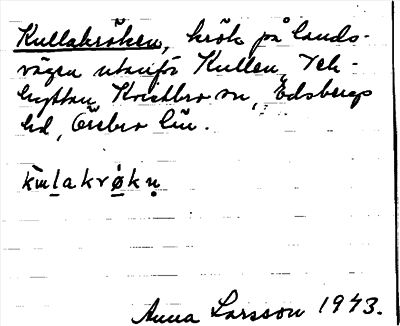 Kullakröken, krök på lands-
vägen utanför Kullen, Tek-
hyttan, Kvistbro sn, Edsbergs
hd, Örebro län.
Anna Larsson 1943.